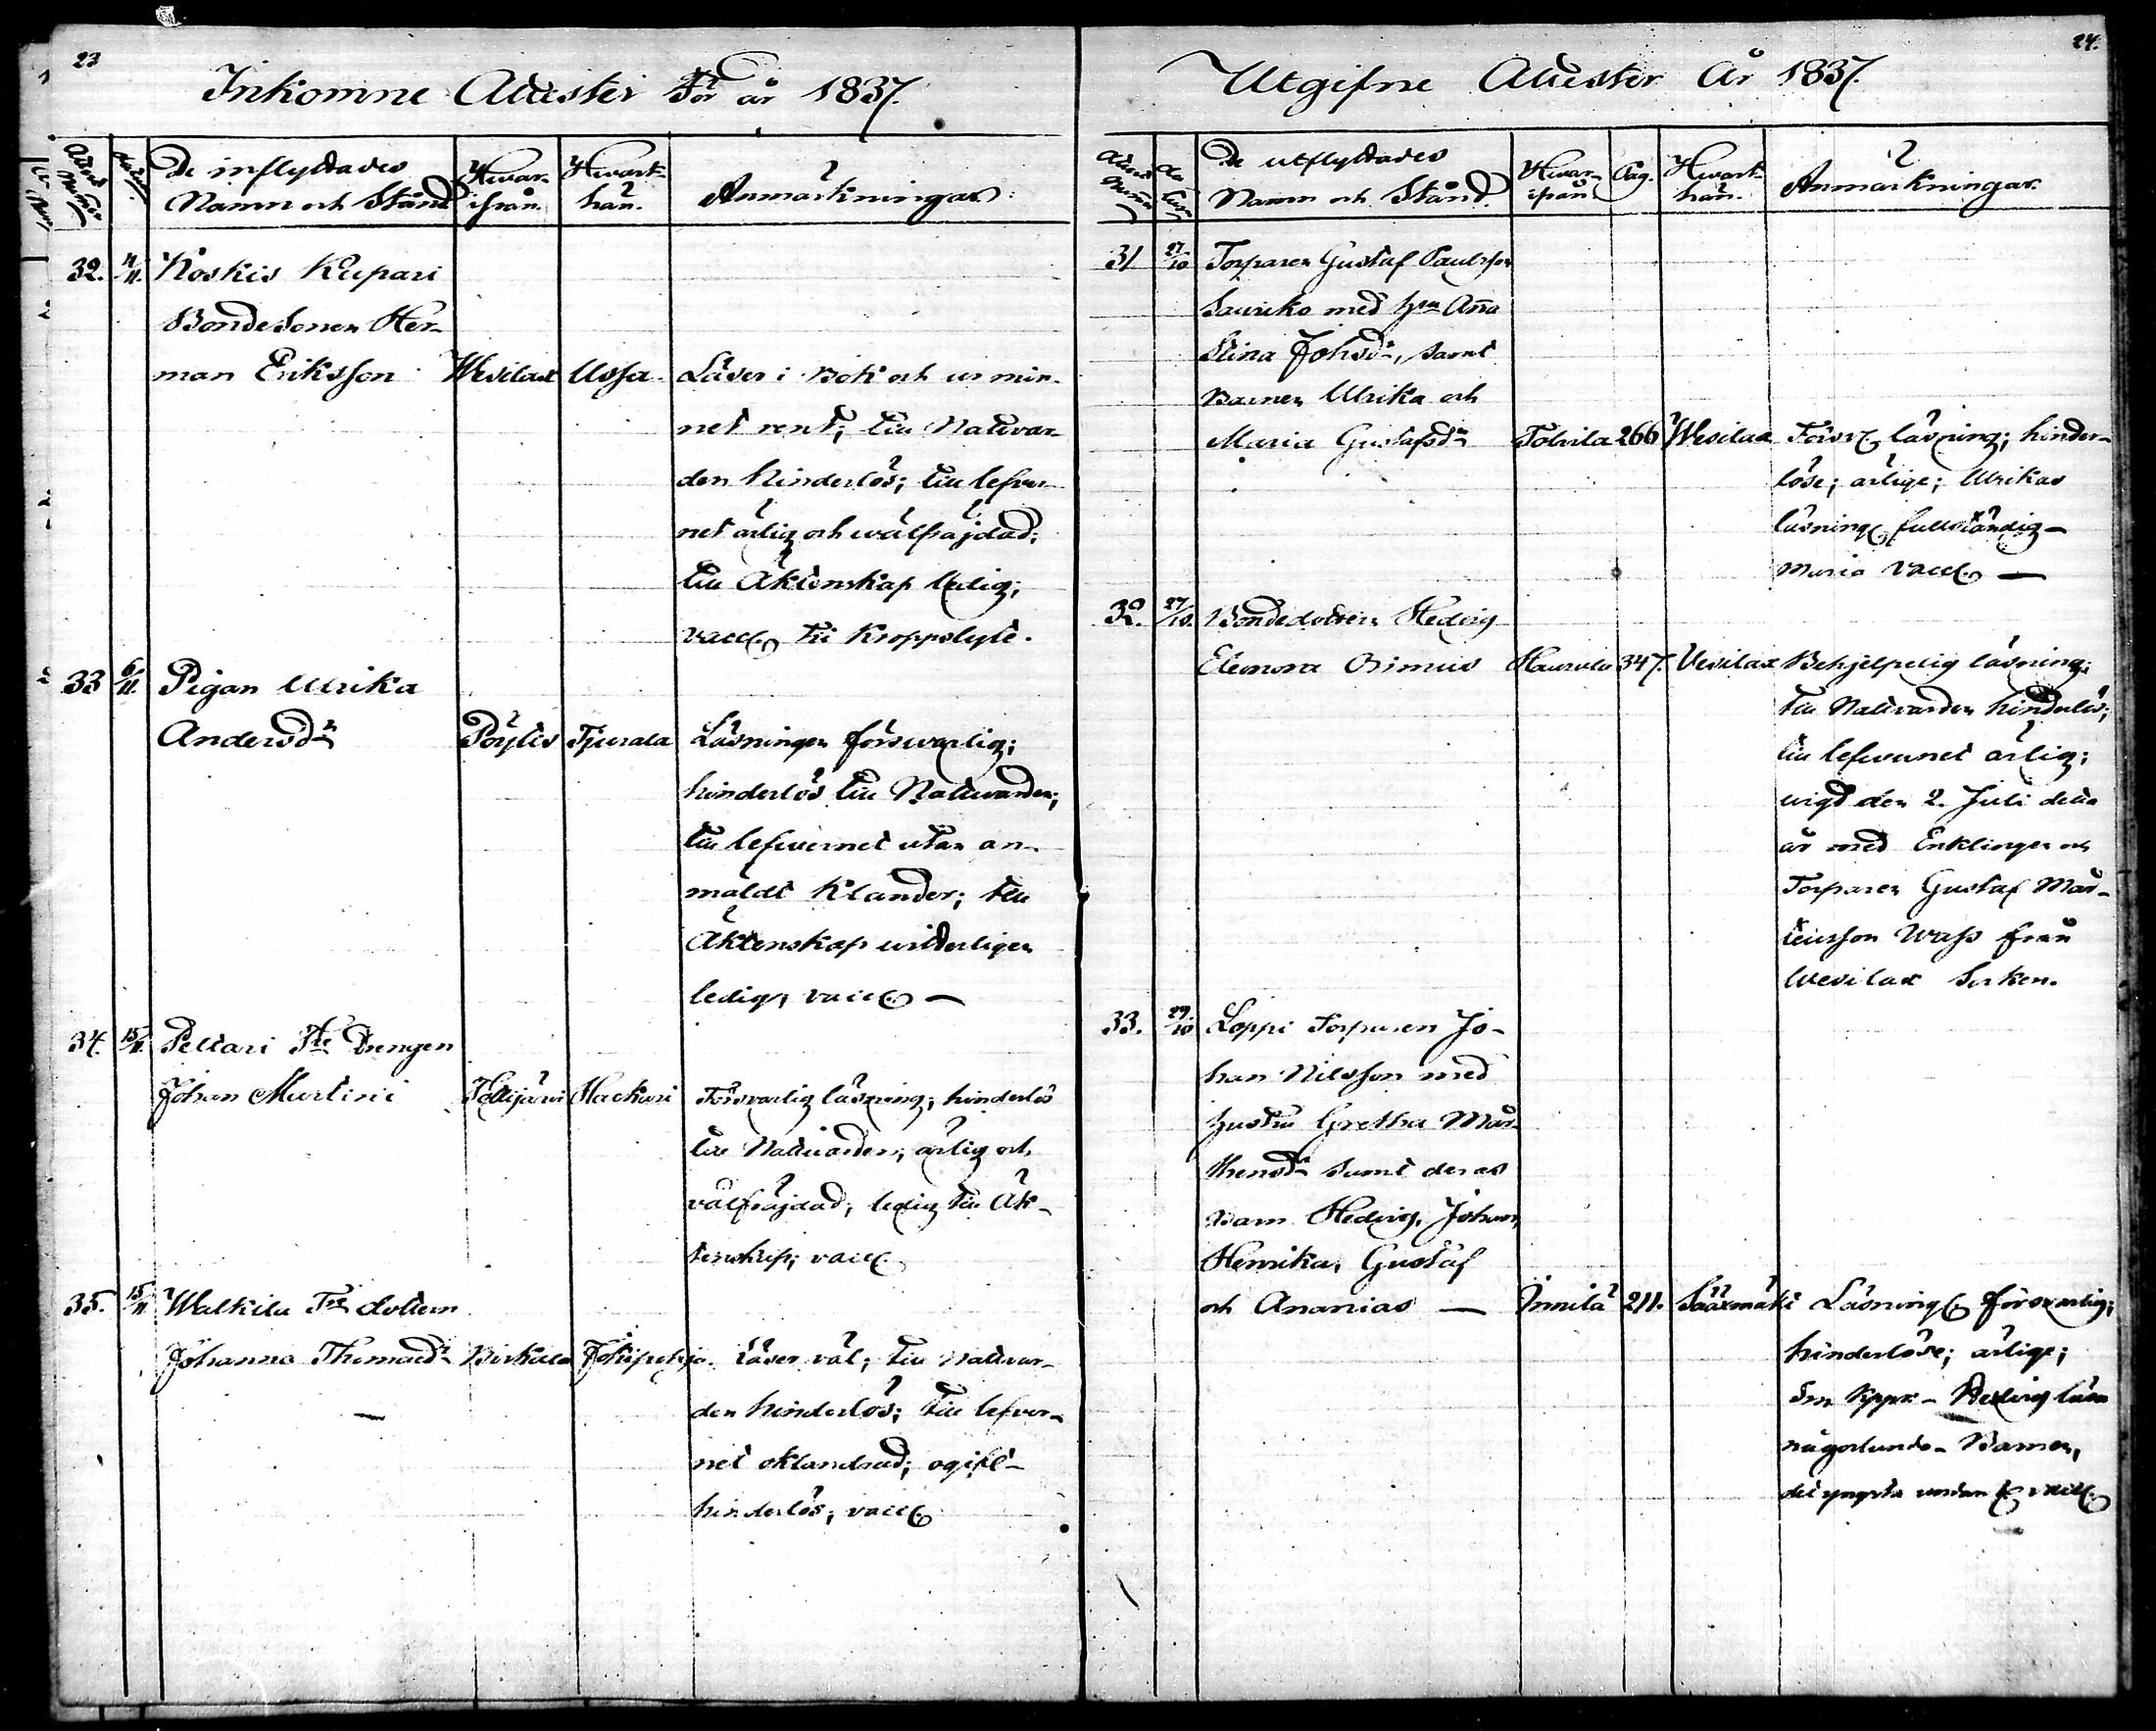 23
Inkomne Attester För år 1837.
Attest Numer
Datum
De inflyttades Namn och Stånd
Hvarifrån.
Hvarthän.
Anmärkningar.
32. 4/11. Koskis Kupari
Bondesonen Her-
man Eriksson Wesilax Ussa. Läser i Bok och ur min-
net rent; till Nattvar-
den hinderlös; till lefver-
net ärlig och wälfräjdad;
till Äktenskap ledig;
vacc. fri Kroppslyte.
33 6/11. Pigan Ulrika
Andersdr Pöytis Tjurala Läsningen försvarlig;
hinderlös till Nattvarden;
till lefvernet utan an-
mäldt Klander; till
Äktenskap witterligen
ledig; vacc. —
34. 15/11. Peltari Drengen
Johan Martini Hattijärvi Hackari Försvarlig läsning; hinderlös
till Nattvarden; ärlig och
välfräjdad; ledig till Äk-
tenskap; vacc.
35. 15/11 Walkila dottern
Johanna Thomasdr Birkala Jokipohja. Läser väl; till Nattvar-
den hinderlös; till lefver-
net oklandrad; ogift-
hinderlös; vacc.
—
24.
Utgifne Attester År 1837.
Attest Numer
Datum
De utflyttades Namn och Stånd.
Hvarifrån
Pag.
Hvarthän.
Anmärkningar.
31 27/10 Torparen Gustaf Paulsson
Sauriko med hu Anna
Stina Johsdr, samt
Barnen Ulrika och
Maria Gustafsdr Tolvila 266 Wesilax Försv. läsning; hinder-
löse; ärlige; Ulrikas
läsning fullständig-
Maria vacc. —
32. 27/10. Bondedottern Hedvig
Eleonora Simius 347. Vesilax Behjelpelig läsning;
till Nattvarden hinderlös;
till lefvernet ärlig;
vigd den 2. Juli detta
år med Enklingen och
Torparen Gustaf Mår-
tensson Wass från
Wesilax Socken.
33. 29/10 Loppi Torparen Jo-
han Nilsson med
hustru Gretha Mår-
thensdr samt deras
Barn Hedvig, Johan,
Henrika, Gustaf
och Ananias — Innilä 211. Sääxmäki Läsning försvarlig;
hinderlöse; ärlige;
Hedvig läser
någorlunda - Barnen,
det yngsta undan vacc.